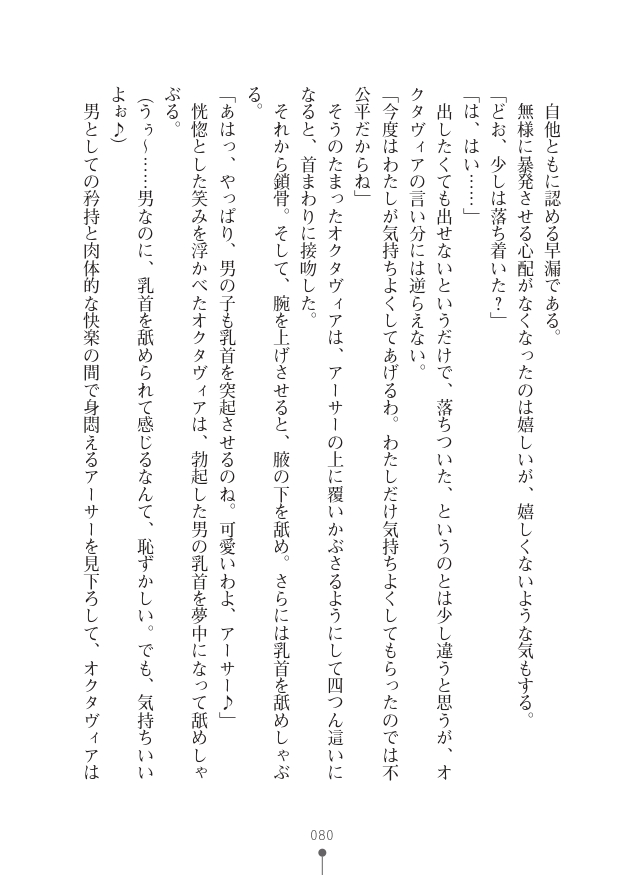 自他ともに認める早漏である。
無様に暴発させる心配がなくなったのは嬉しいが、嬉しくないような気もする。
「どお、少しは落ち着いた?」
「は、はい……」
出したくても出せないというだけで、落ちついた、というのとは少し違うと思うが、オ
クタヴィアの言い分には逆らえない。
「今度はわたしが気持ちよくしてあげるわ。わたしだけ気持ちよくしてもらったのでは不
公平だからね」
そうのたまったオクタヴィアは、アーサーの上に覆いかぶさるようにして四つん這いに
なると、首まわりに接吻した。
それから鎖骨。そして、腕を上げさせると、腋の下を舐め。さらには乳首を舐めしゃぶ
る。
「あはっ、やっぱり、男の子も乳首を突起させるのね。可愛いわよ、アーサー♪」
恍惚とした笑みを浮かべたオクタヴィアは、勃起した男の乳首を夢中になって舐めしゃ
ぶる。
(うぅ～……男なのに、乳首を舐められて感じるなんて、恥ずかしい。でも、気持ちいい
よぉ♪)
男としての矜持と肉体的な快楽の間で身悶えるアーサーを見下ろして、オクタヴィアは
080